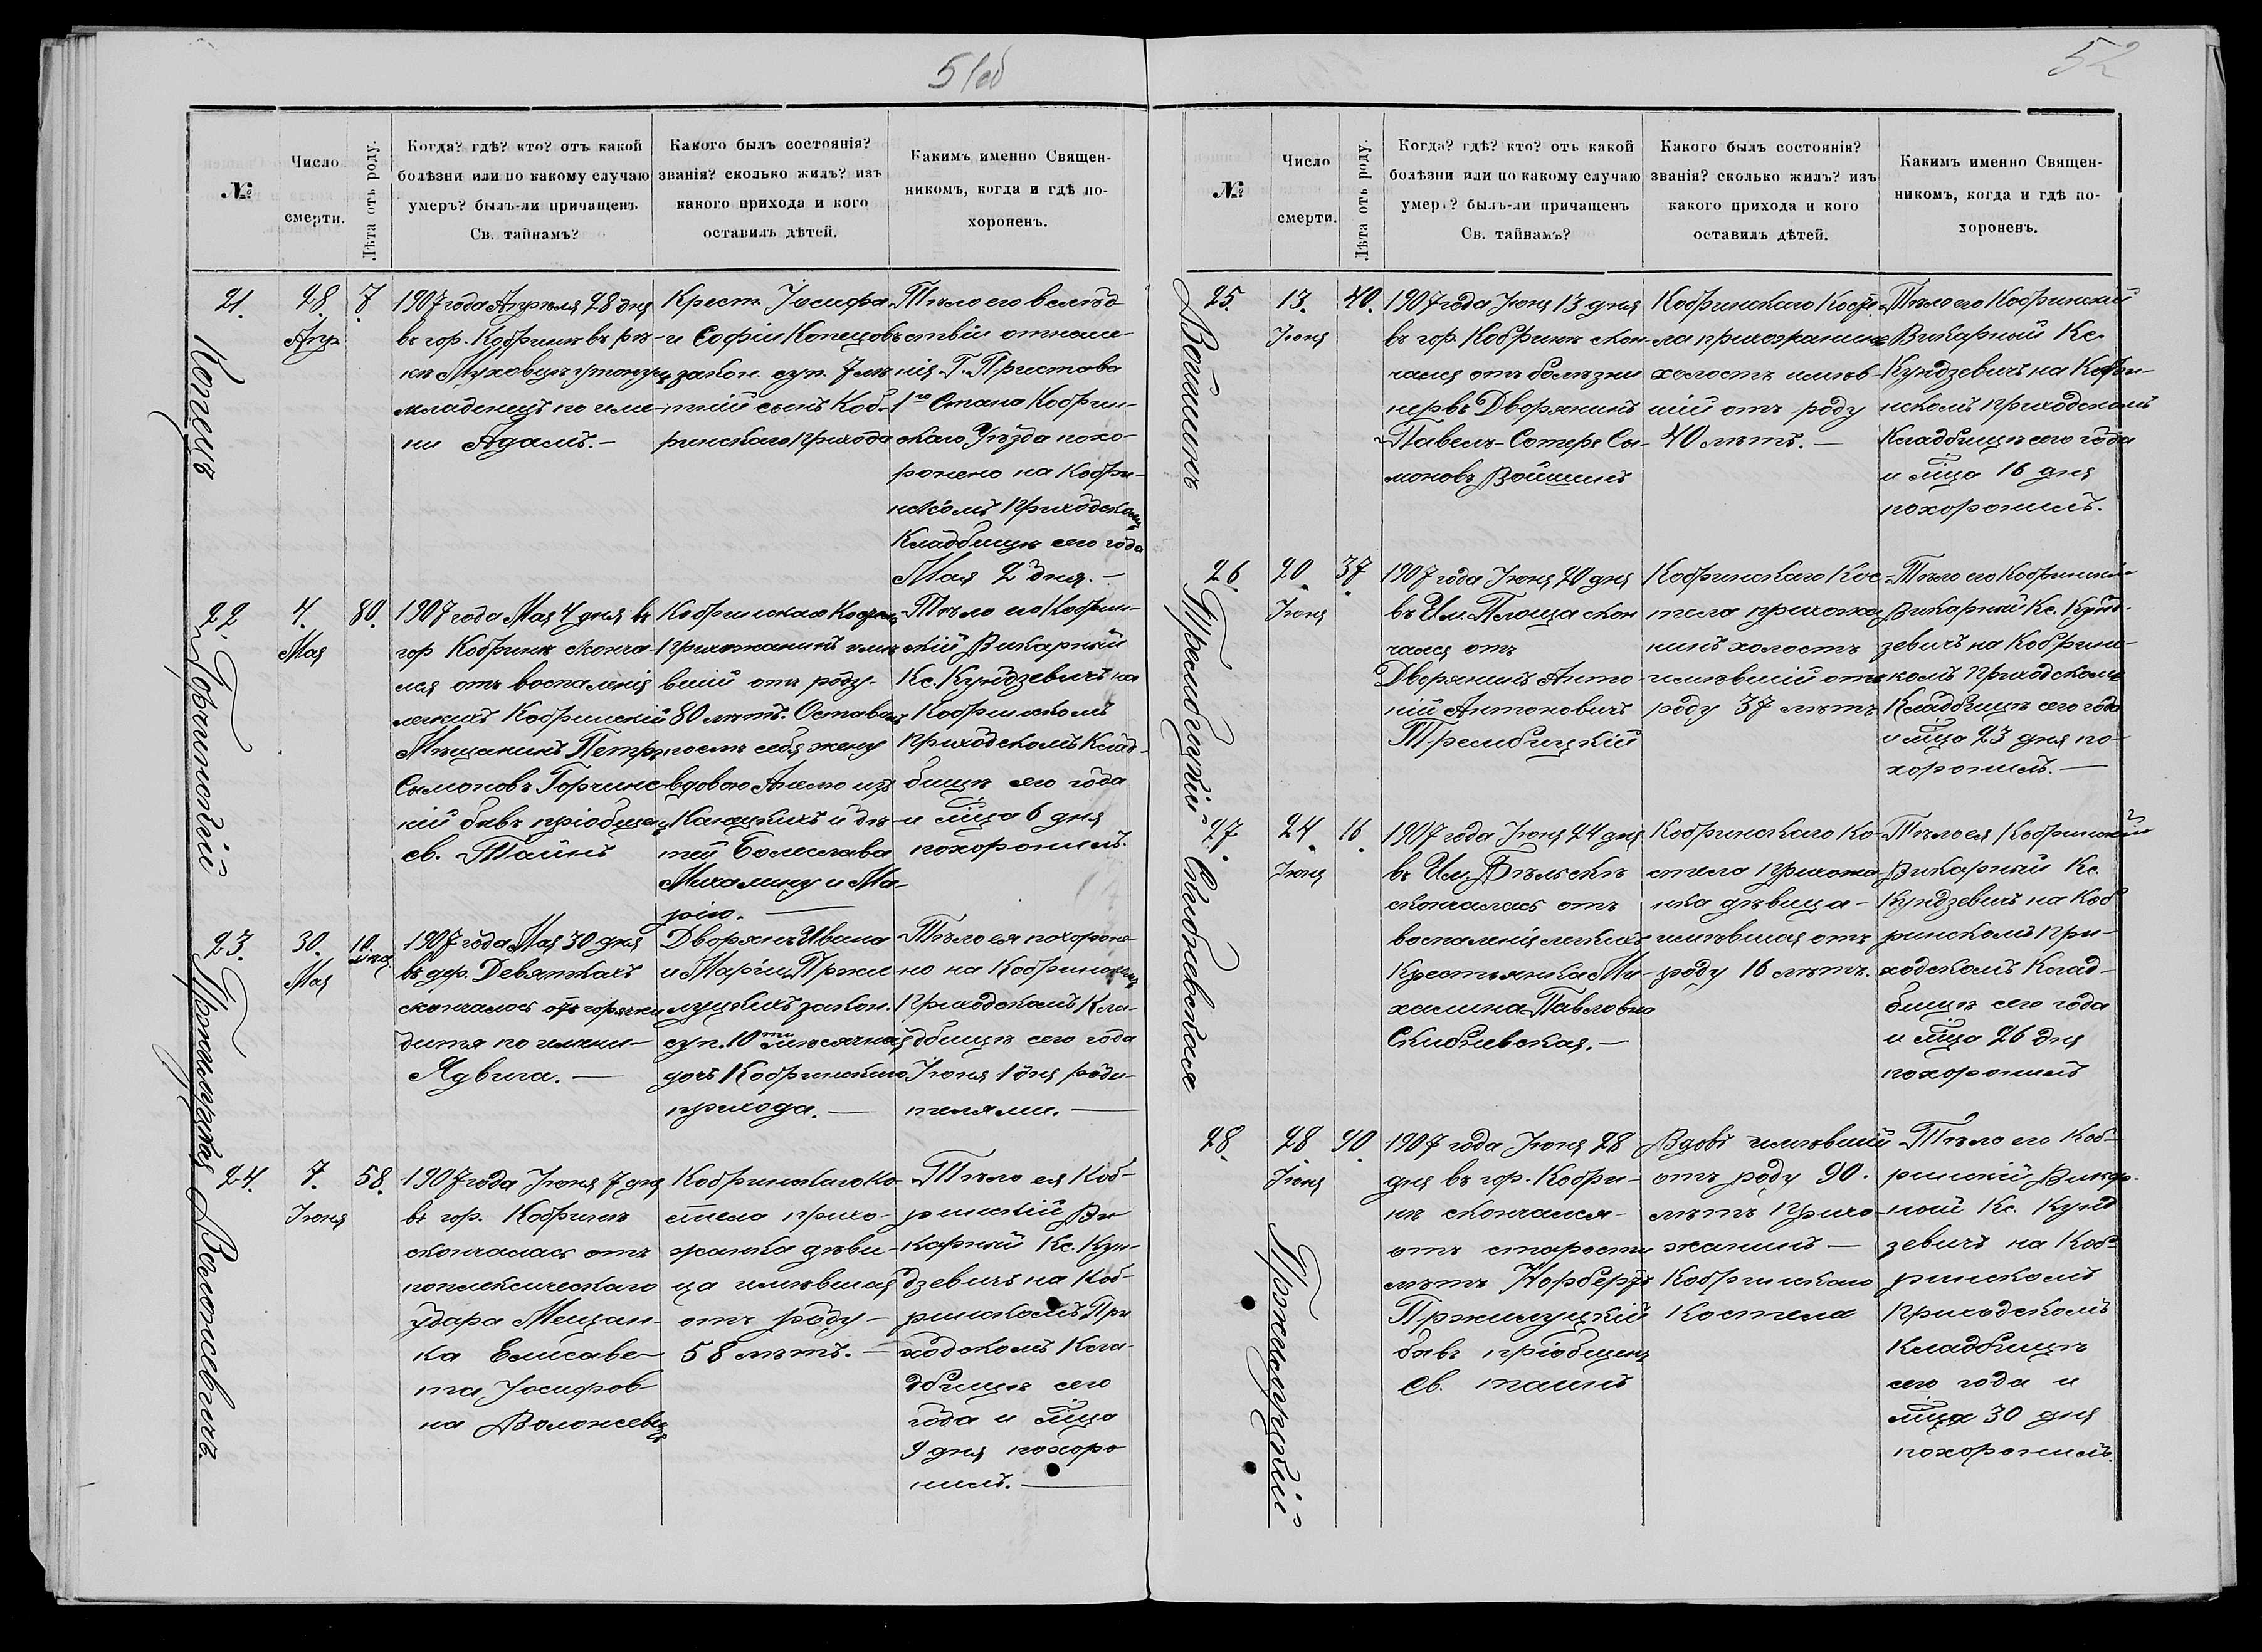 51об
№
Число
смерти.
Лѣта отъ роду.
Когда? гдѣ? кто? отъ какой
болѣзни или по какому случаю
умеръ? былъ-ли причащенъ
Св. тайнамъ?
Какого былъ состоянія?
званія? сколько жилъ? изъ
какого прихода и кого
оставилъ дѣтей.
Какимъ именно Священ-
никомъ, когда и гдѣ по-
хороненъ.
21.
28.
Апр.
7.
1907 года Апрѣля 28 дня
въ гор. Кобринѣ въ рѣ-
кѣ Муховцѣ утонулъ
младенецъ по име-
ни Адамъ.—
Крест. Іосифа
и Софіи Копецовъ
закон. суп. 7 лѣ
тній сынъ Коб-
ринскаго прихода
Тѣло его вслѣд
ствіи отноше-
нія Г. Пристава
1го Стана Кобрин-
скаго Уѣзда похо-
ронено на Кобри-
нскомъ Приходскомъ
Кладбищѣ сего года
Мая 2 дня.—
22.
4.
Мая
80.
1907 года Мая 4 дня въ
гор Кобринѣ сконча-
лся отъ воспаленія
легкихъ Кобринскій
Мѣщанинъ Петръ
Сымоновъ Горчинс-
кій бывъ пріобщенъ
св. Таинъ
Кобринскаго Костела
Прихожанинъ имѣ
вшій отъ роду
80 лѣтъ. Оставилъ
послѣ себя жену
вдовою изъ
и дѣ-
тей Болеслава
Михалину и Ма-
рію.—
Тѣло его Кобрин-
скій Викарный
Кс. Кундзевичъ на
Кобринскомъ
приходскомъ Клад-
бищѣ сего года
и мѣца 6 дня
похоронилъ.
Горчинскій
23.
30.
Мая
10.
мѣс.
1907 года Мая 30 дня
въ дер. Девяткахъ
скончалось отъ горячки
дитя по имени—
Ядвига.—
Дворянъ Ивана
и Маріи Пржи
луцкихъ закон.
суп. 10ти мѣсячная
дочь Кобринскаго
прихода.—
Тѣло ея похороне-
но на Кобринскомъ
Приходскомъ Кла-
дбищѣ сего года
Іюня 1 дня роди-
телями.—
Пржилуцкая
24.
7.
Іюня
58.
1907 года Іюня 7 дня
въ гор. Кобринѣ
скончалась отъ
поплексическаго
удара Мещан-
ка Елисаве-
та Іосифов-
на
Кобринскаго Ко-
стела прихо-
жанка дѣви-
ца имѣвшая
отъ роду—
58 лѣтъ.—
Тѣло ея Коб-
ринскій Ви
карный Кс. Кун-
дзевичъ на Коб-
ринскомъ При
ходскомъ Кла-
дбищѣ сего
года и мѣца
9 дня похоро
нилъ.—
52
№
Число
смерти.
Лѣта отъ роду.
Когда? гдѣ? кто? отъ какой
болѣзни или по какому случаю
умеръ? былъ-ли причащенъ
Св. тайнамъ?
Какого былъ состоянія?
званія? сколько жилъ? изъ
какого прихода и кого
оставилъ дѣтей.
Какимъ именно Священ-
никомъ, когда и гдѣ по-
хороненъ.
25.
13.
Іюня
40.
1907 года Іюня 13 дня
въ гор. Кобринѣ скон-
чался отъ болѣзни
нервъ Дворянинъ
Павелъ-Сотеръ Сы-
моновъ Войшинъ
Кобринскаго Косте-
ла прихожанинъ
холостъ имѣв-
шій отъ роду
40 лѣтъ.—
Тѣло его Кобринскій
Викарный Кс.
Кундзевичъ на Кобри-
нскомъ приходскомъ
Кладбищѣ сего года
и мѣца 16 дня
похоронилъ.
26.
20.
Іюня
37.
1907 года Іюня 20 дня
въ Им. Площа скон
чался отъ
Дворянинъ Анто-
ній Антоновичъ
Трембицкій
Кобринскаго Кос-
тела прихожа
нинъ холостъ
имѣвшій отъ
роду 37 лѣтъ
Тѣло его Кобринскій
Викарный Кс. Кунд-
зевичъ на Кобринс-
комъ Приходскомъ
Кладбищѣ сего года
и мѣца 23 дня по-
хоронилъ.—
Трембицкій
27.
24.
Іюня
16.
1907 года Іюня 24 дня
въ Им.
скончалась отъ
воспаленія легкихъ
Крестьянка Ми-
халина Павловна
Скибневская.—
Кобринскаго Ко-
стела Прихожа
нка дѣвица—
имѣвшая отъ
роду 16 лѣтъ.
Тѣло ея Кобринскій
Викарный Кс.
Кундзевичъ на Коб
ринскомъ При-
ходскомъ Клад-
бищѣ сего года
и мѣца 26 дня
похоронилъ
Скибневская
28.
28
Іюня
90.
1907 года Іюня 28
дня въ гор. Кобри-
нѣ скончался—
отъ старости
лѣтъ Норбертъ
Пржилуцкій
бывъ пріобщенъ
Св. таинъ
Вдовъ имѣвшій
отъ роду 90.
лѣтъ прихо-
жанинъ—
Кобринскаго
Костела
Тѣло его Коб-
ринскій Викар-
ный Кс. Кунд
зевичъ на Коб-
ринскомъ
Приходскомъ
Кладбищѣ
сего года и
мѣца 30 дня
похоронилъ.
Пржилуцкій